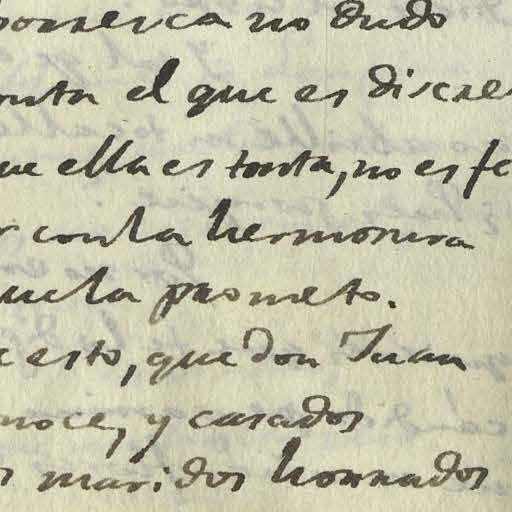 no dudo
el que es discre
ue ella es tonta, no es fe
r con la hermosura
que la prometo.
e esto, que Don Juan
noce, y casados
s maridos honrados